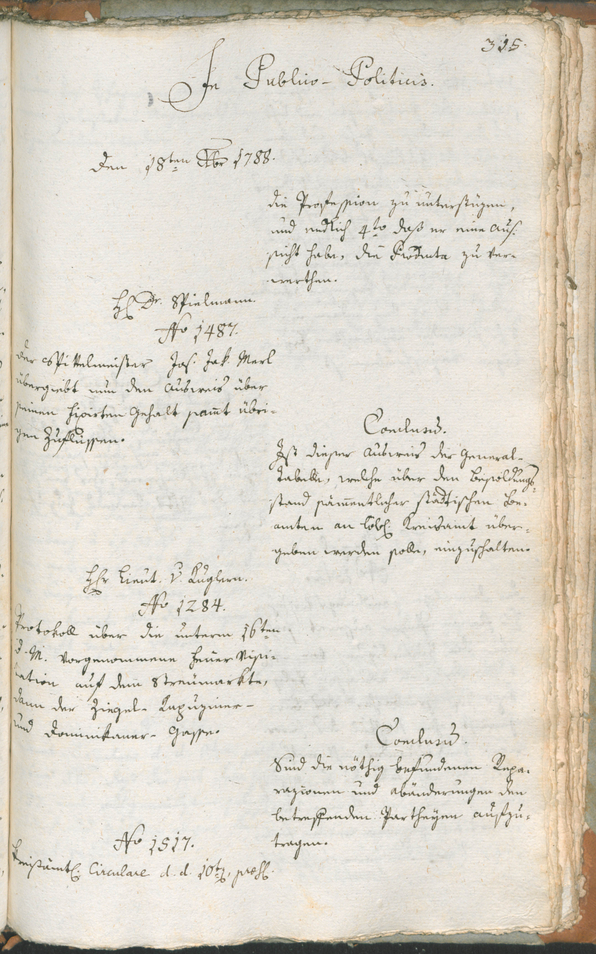 315.
In Publico-Politicis.
den 18ten Xbr 1788.
die Profession zu unterstüzen,
und endlich 4to daß er eine Aus-
sicht habe, die Producta zu ver-
werthen.
H. Dr. Spielmann.
No 1487.
Der Spittelmeister Jos. Jak. Merl
übergiebt nun den Ausweis über
seinen fixirten Gehalt samt übri-
gen Zuflüssen.
Conclusum.
Ist dieser Ausweis der General-
Tabelle, welche über den Besoldungs-
stand sämentlicher städtischen Be-
amten an löbl. Kreisamt über-
geben werden solle, einzuschalten.
Hr Lieut. v. Kuglern.
No 1284.
Protokoll über die unterm 16ten
d. M. vorgenommene Feuer Visi-
tation auf dem Streumarkte,
dann der Ziegel- Kapuziner-
und Dominikaner-Gasse.
Conclusum.
Sind die nöthig befundenen Repa-
razionen und Abänderungen den
betreffenden Partheyen aufzu-
tragen.
No 1517.
Kreisämtl. Circulare d. d. 10ten, praes.